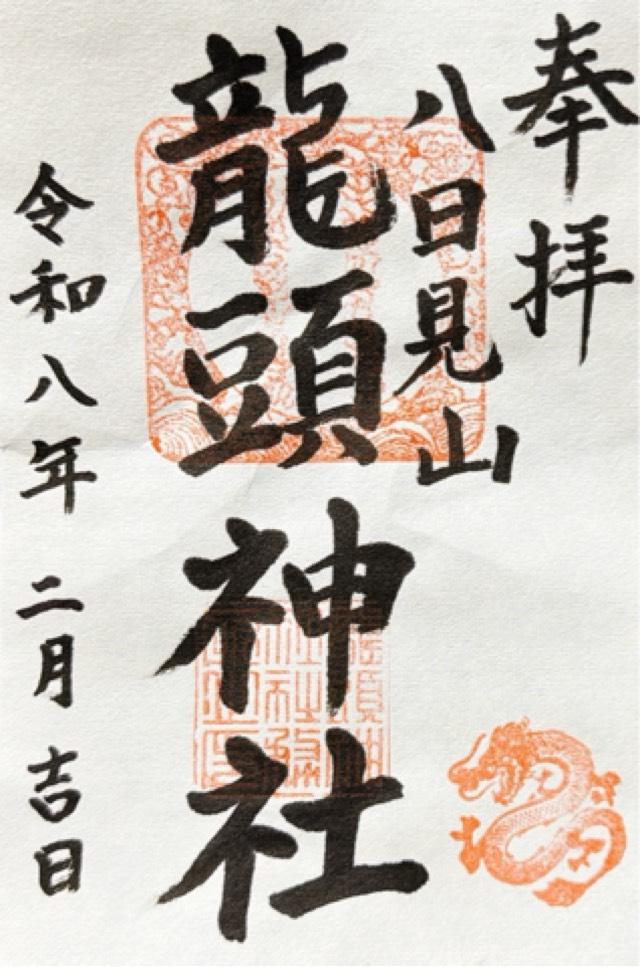 奉拝
八日見山
龍頭神社
令和八年二月吉日